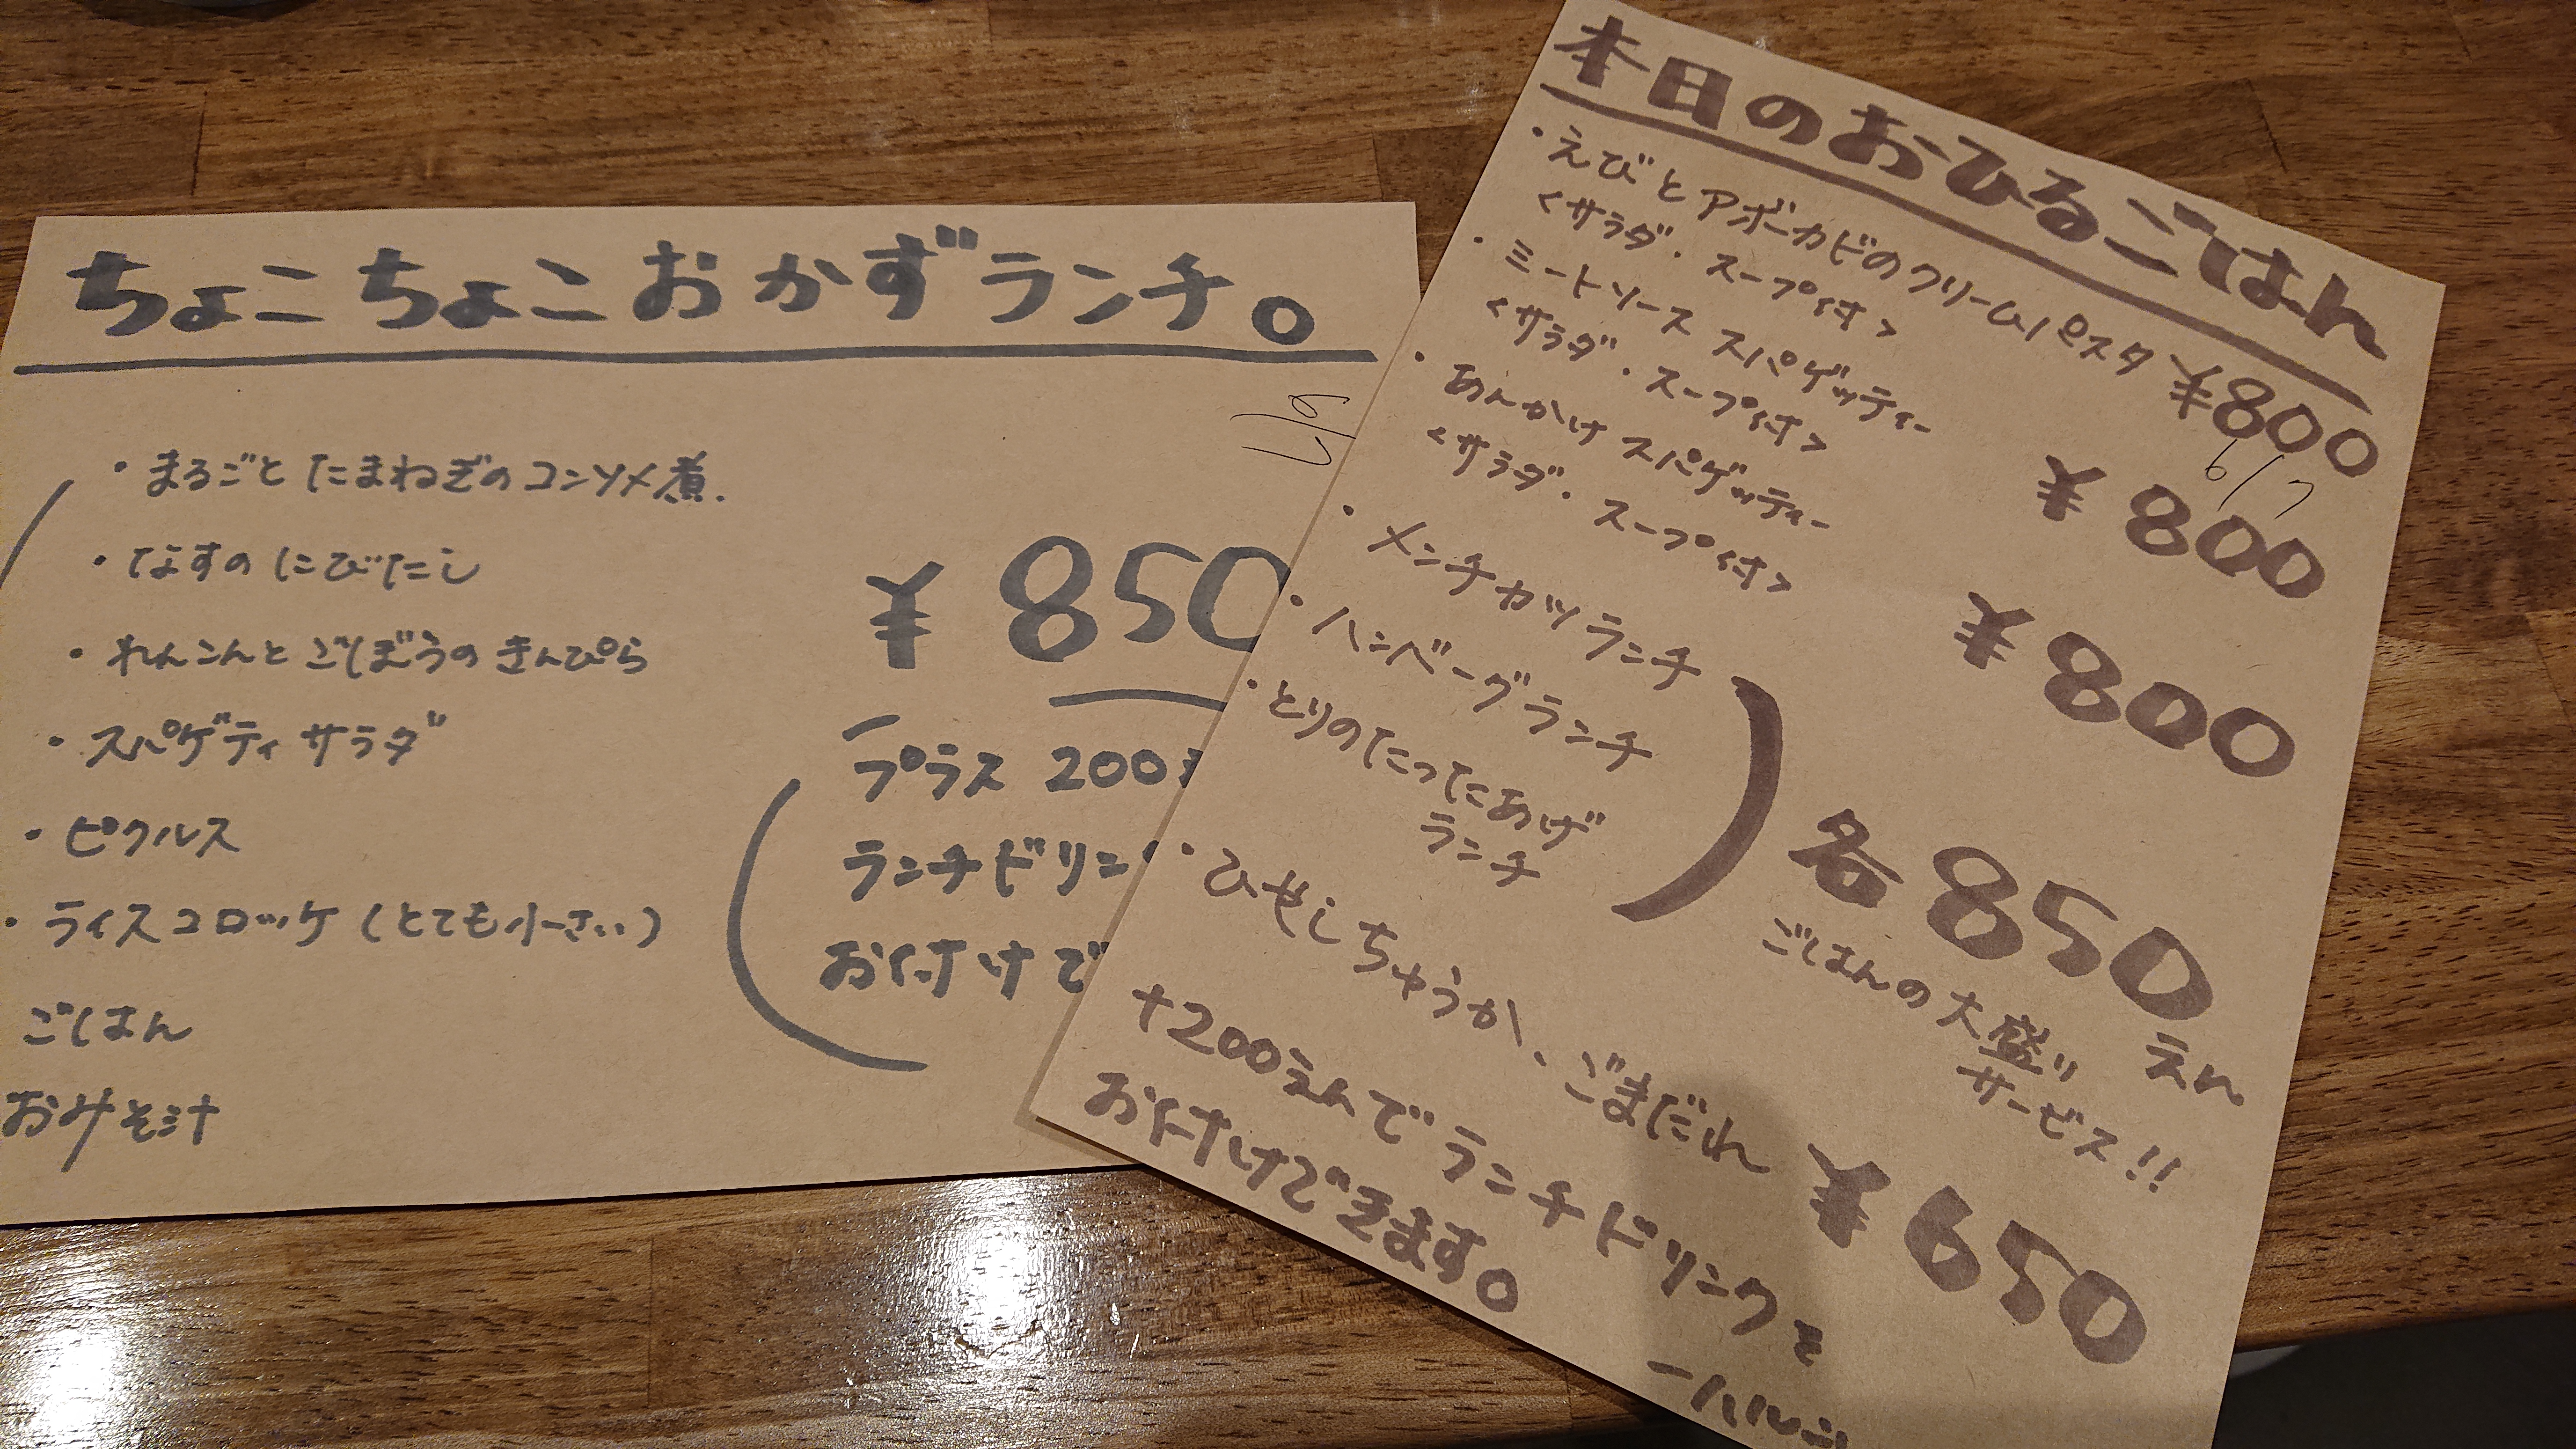 ちょこちょこおかずランチ。
6/7
・まるごとたまねぎのコンソメ煮.
・なすのにびたし
・れんこんとごぼうのきんぴら
・スパゲティサラダ
・ピクルス
・ライスコロッケ(とても小さい)
ごはん
おみそ汁
¥850
プラス200
ランチドリン
お付けで
本日のおひるごはん
・えびとアボカドのクリームパスタ ¥800
<サラダ・スープ付>
6/7
・ミートソーススパゲッティー ¥800
<サラダ・スープ付>
・あんかけスパゲッティー ¥800
<サラダ・スープ付>
・メンチカツランチ
・ハンバーグランチ
・とりのたつたあげ
ランチ
各850えん
ごはんの大盛り
サービス!!
・ひやしちゅうか、ごまだれ ¥650
+200えんでランチドリンクを
お付けできます。